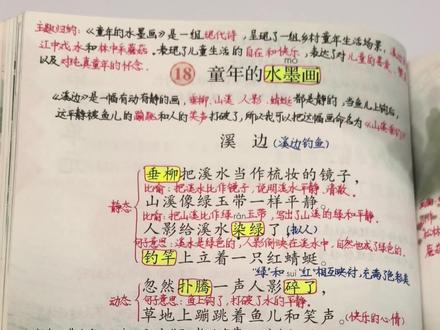 主题归纳：《童年的水墨画》是一组现代诗，呈现了一组乡村童年生活场景，溪边
江中戏水和林中采蘑菇。表现了儿童生活的自在和快乐，表达了对儿童的喜爱、赞
以及对纯真童年的怀念。
mò
18 童年的水墨画
《溪边》是一幅有动有静的画，垂柳、山溪、人影、蜻蜓都是静的，当鱼儿上钩后，
这平静被鱼儿的蹦跳和人的笑声打破了，所以我可以把这幅画命名为《山溪垂钓》
溪 边（溪边钓鱼）
垂柳把溪水当作梳妆的镜子，
比喻：把溪水比作镜子，说明溪水平静、清澈。
山溪像绿玉带一样平静。
静态 比喻：把山溪比作绿玉带，写出了山溪的绿和平静。
rǎn
人影给溪水染绿了（拟人）
句子意思：溪水是绿色的，人影倒映在溪水中，自然也成了绿色的。
钓竿上立着一只红蜻蜓。
suì
“绿”和“红”相互映衬，充满了色彩美
忽然扑腾一声人影碎了，
动态 句子意思：鱼上钩了，打破了水的平静。
草地上蹦跳着鱼儿和笑声。（快乐的心情）